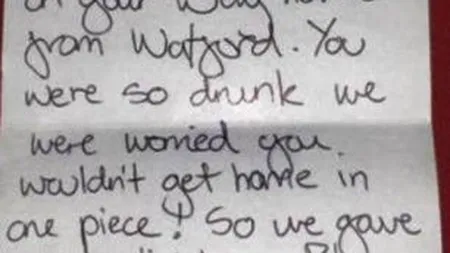 on your way
from Watford. You
were so drunk we
were worried you
wouldn't get home in
one piece! So we gave